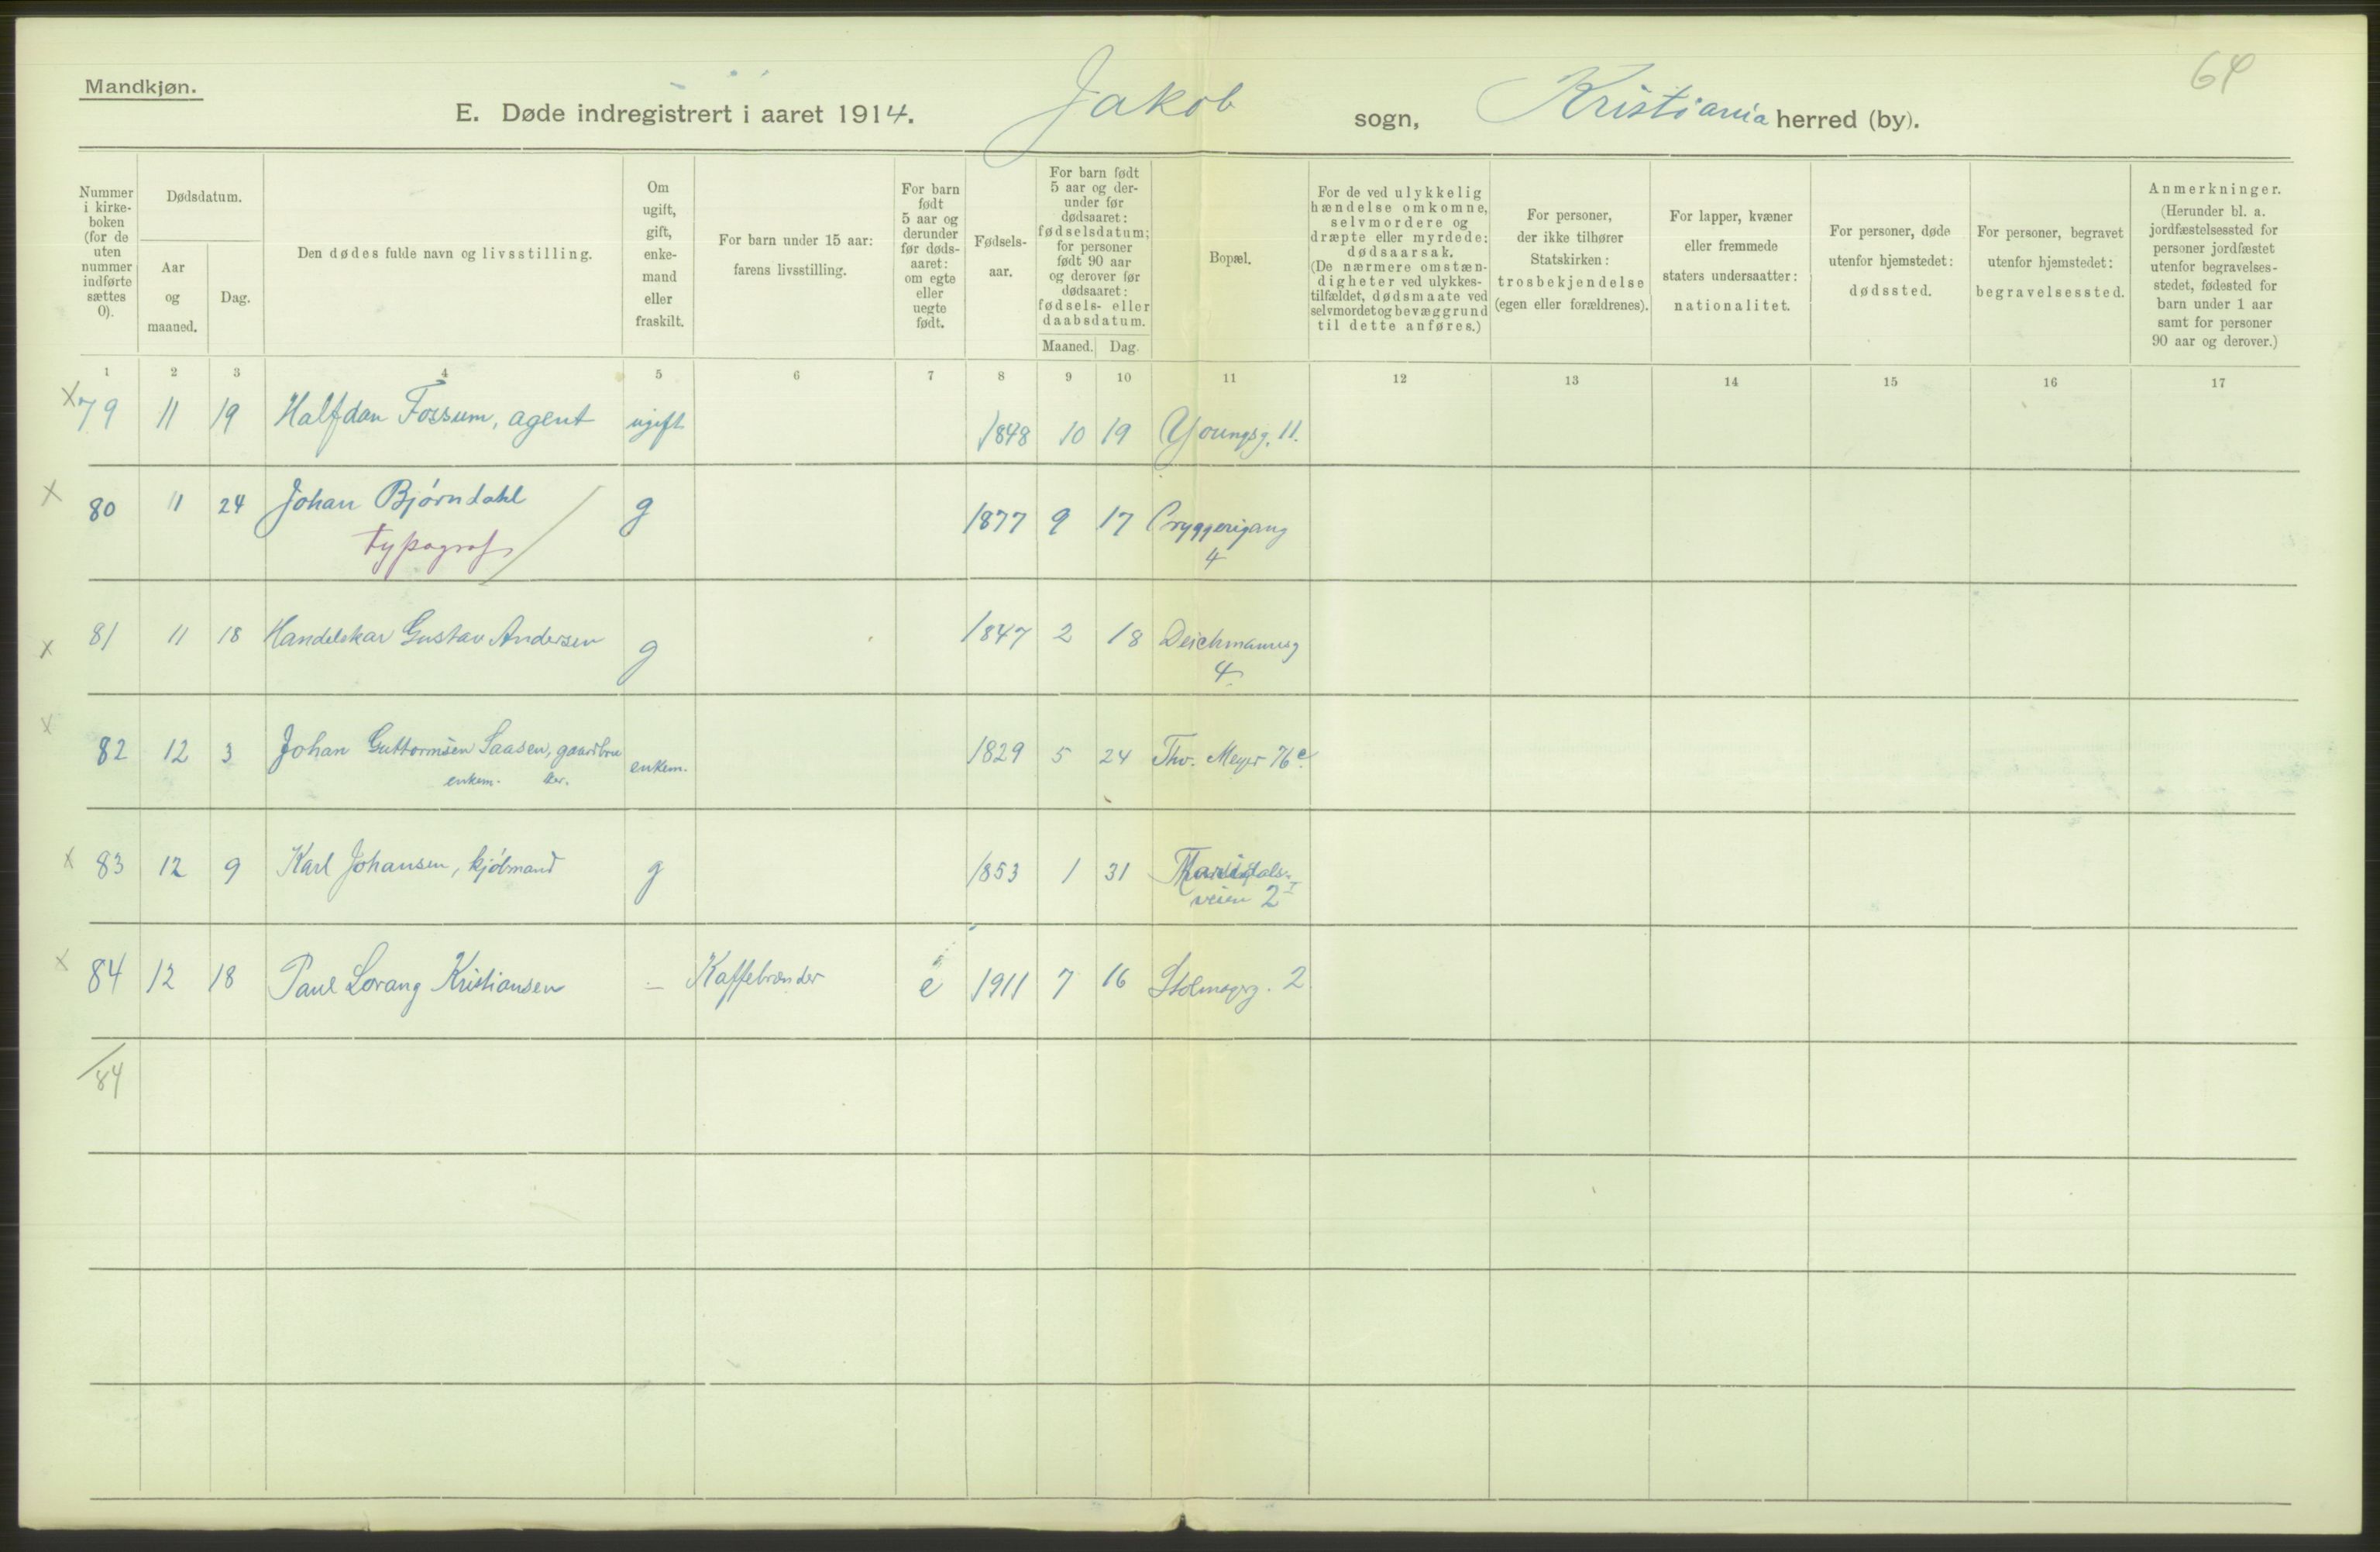 Mandkjøn.
64
E. Døde indregistrert i aaret 1914. Jakob sogn, Kristiania herred (by).
Nummer i kirke-boken (for de uten nummer indførte sættes 0).
Dødsdatum.
Aar og maaned.
Dag.
Den dødes fulde navn og livsstilling.
Om ugift, gift, enke-mand eller fraskilt.
For barn under 15 aar: farens livsstilling.
For barn født 5 aar og derunder før døds-aaret: om egte eller uegte født.
Fødsels-aar.
For barn født 5 aar og der-under før dødsaaret: fødselsdatum; for personer født 90 aar og derover før dødsaaret: fødsels- eller daabsdatum.
Maaned. Dag.
Bopæl.
For de ved ulykkelig hændelse omkomne, selvmordere og dræpte eller myrdede: dødsaarsak. (De nærmere omstæn-digheter ved ulykkes-tilfældet, dødsmaate ved selvmordet og bevæggrund til dette anføres.)
For personer, der ikke tilhører Statskirken: trosbekjendelse (egen eller forældrenes).
For lapper, kvæner eller fremmede staters undersaatter: nationalitet.
For personer, døde utenfor hjemstedet: dødssted.
For personer, begravet utenfor hjemstedet: begravelsessted.
Anmerkninger. (Herunder bl. a. jordfæstelsessted for personer jordfæstet utenfor begravelses-stedet, fødested for barn under 1 aar samt for personer 90 aar og derover.)
1 2 3 4 5 6 7 8 9 10 11 12 13 14 15 16 17
x 79 11 19 Halfdan Fossum, agent ugift 1848 10 19 Youngsg. 11.
x 80 11 24 Johan Bjørndahl g 1877 9 17 Bryggerigang
typograf 4
x 81 11 18 Handelskar Gustav Andersen g 1847 2 18 Deichmannsg
4.
x 82 12 3 Johan Guttormsen Saasen, gaardbru enkem. 1829 5 24 Thv. Meyer 76 c
enkem. ker.
x 83 12 9 Karl Johansen, kjøbmand g 1853 1 31 Maridals-
veien 2 I
x 84 12 18 Paul Lorang Kristiansen – Kaffebrænder e 1911 7 16 Stolmagerg. 2
/84